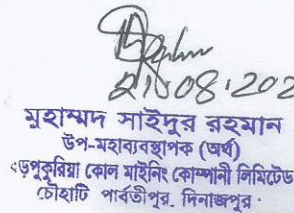 21.08.202
মুহাম্মদ সাইদুর রহমান
উপ-মহাব্যবস্থাপক (অর্থ)
বড়পুকুরিয়া কোল মাইনিং কোম্পানী লিমিটেড
চৌহাটি পার্বতীপুর, দিনাজপুর।